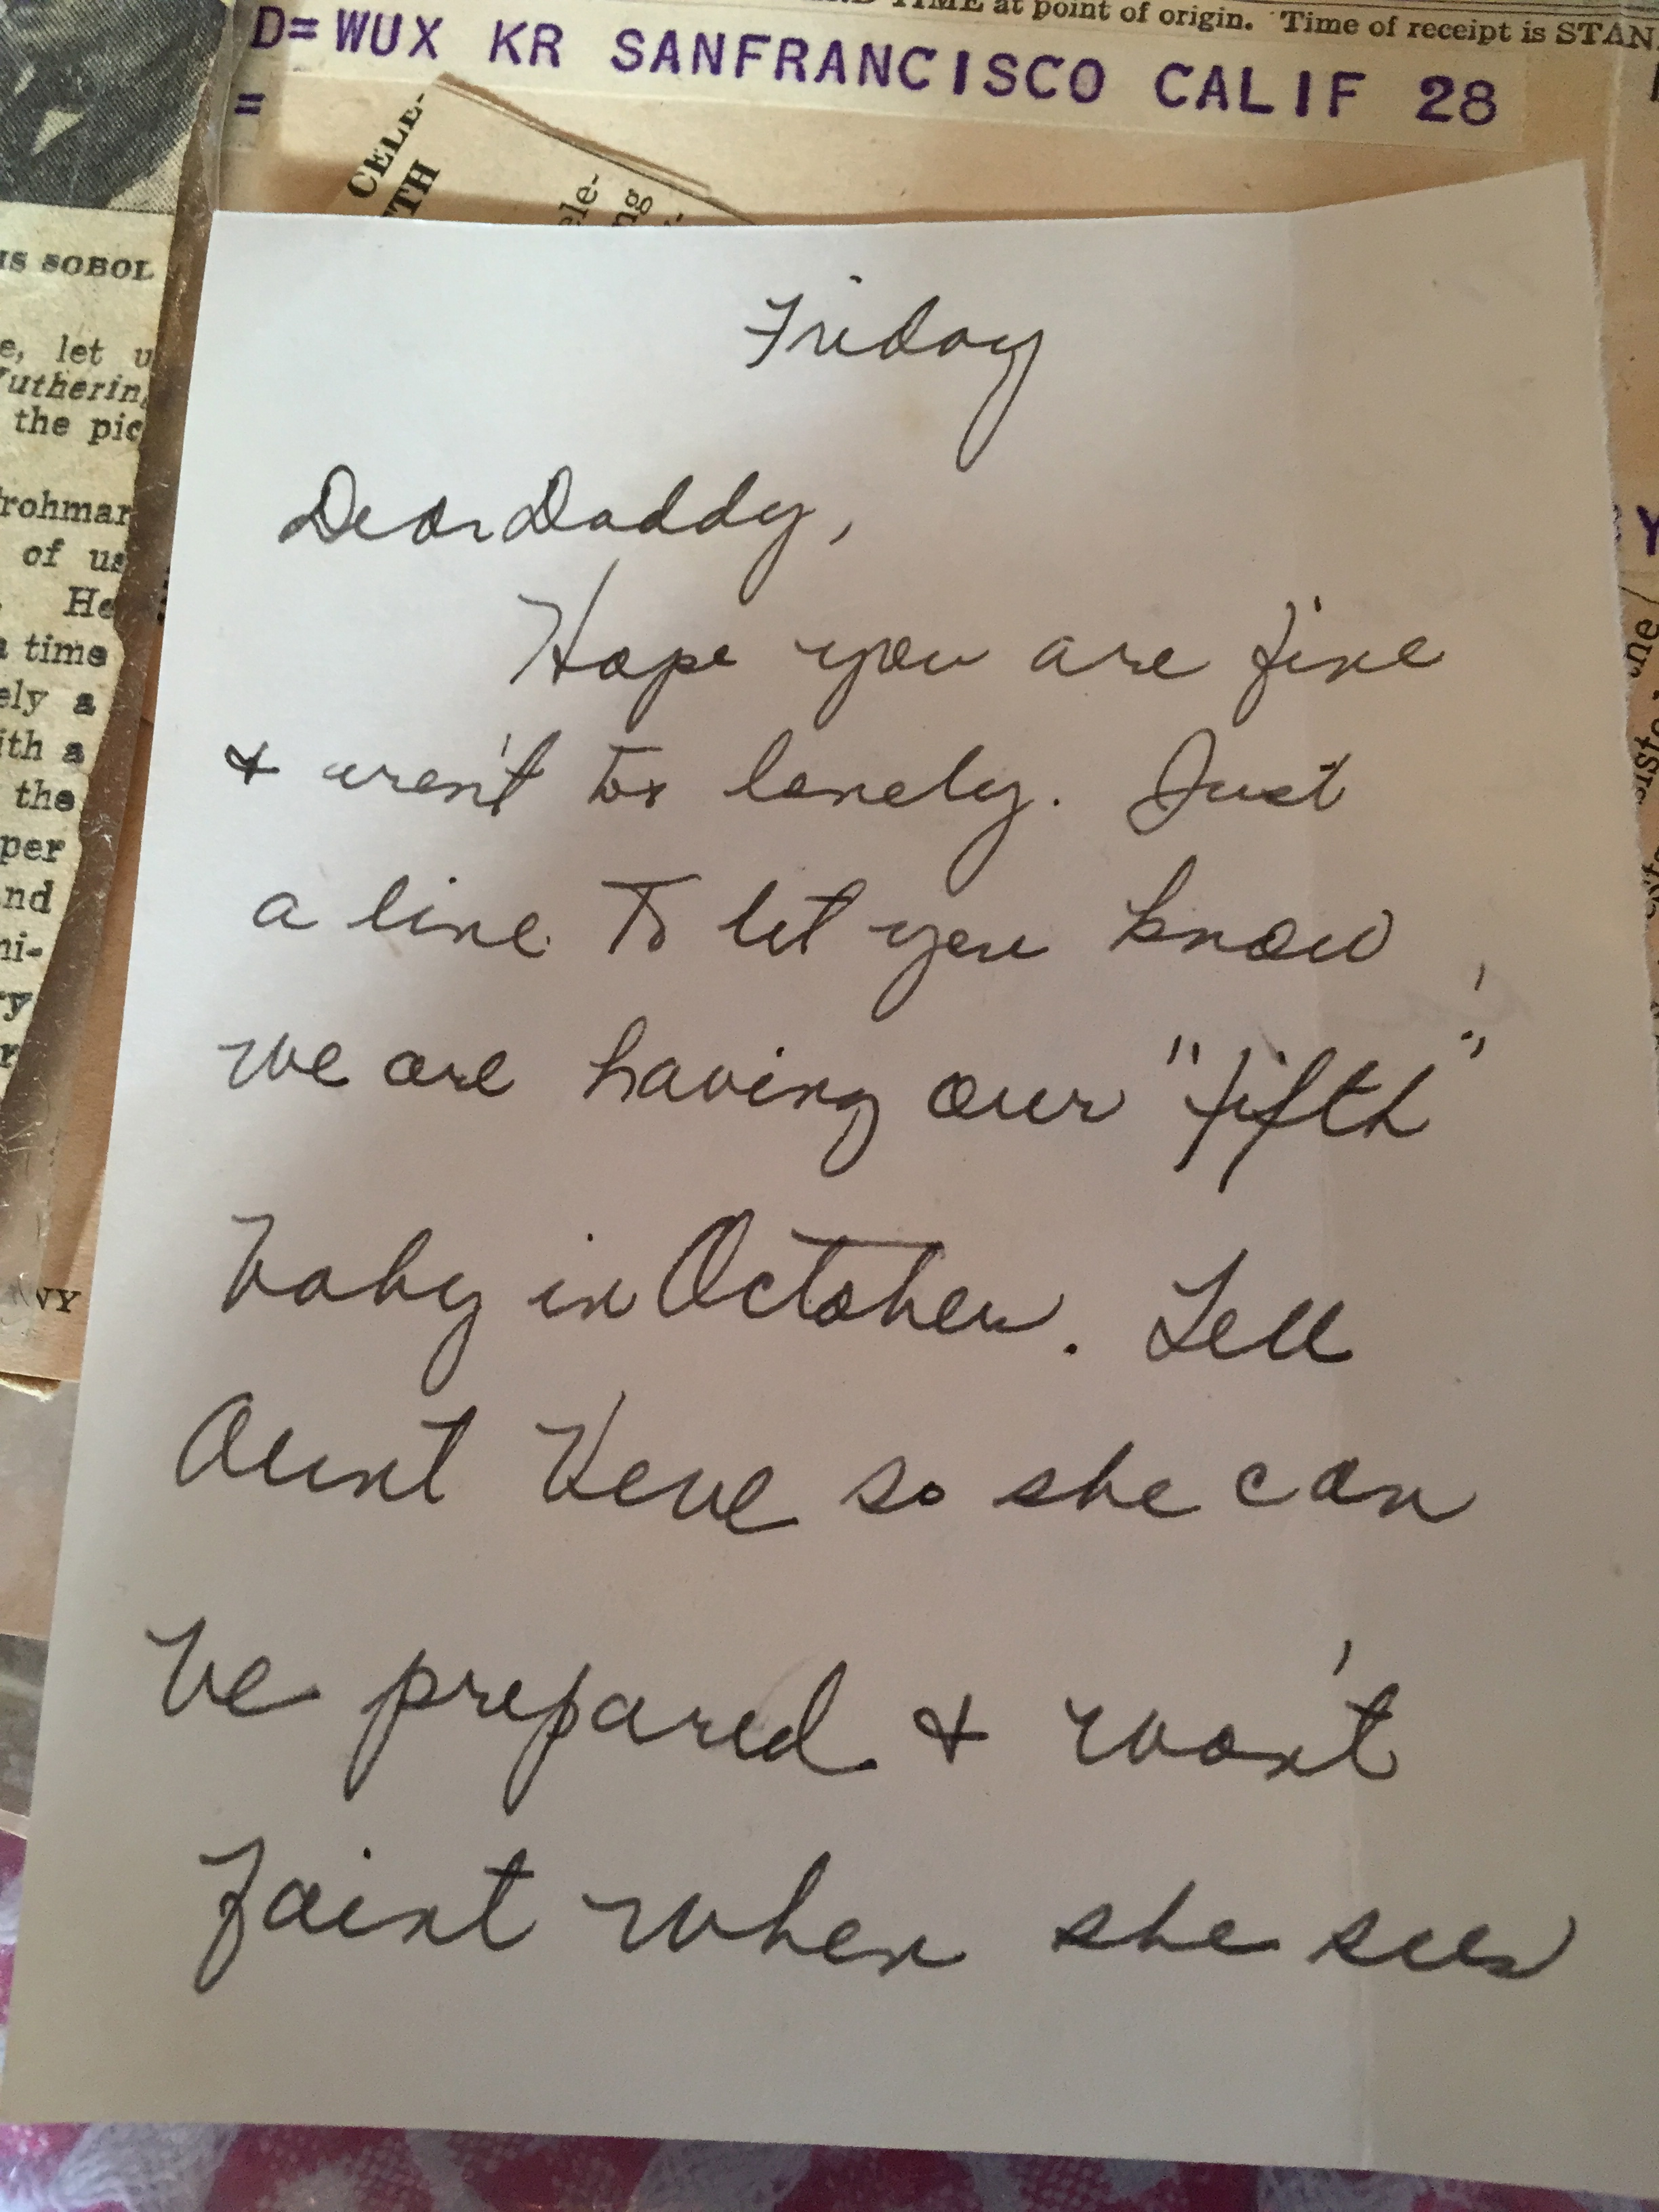 TIME at point of origin. Time of receipt is STAN
D=WUX KR SANFRANCISCO CALIF 28
=
CELE-
TH
ele-
ng
IS SOBOL
e, let u
utherin
the pic
rohman
of us
He
a time
ely a
ith a
the
per
nd
ni-
ry
r
NY
Friday
Dear Daddy,
Hope you are fine
& aren't too lonely. Just
a line to let you know
we are having our "fifth"
baby in October. Tell
Aunt Veve so she can
be prepared & won't
faint when she sees